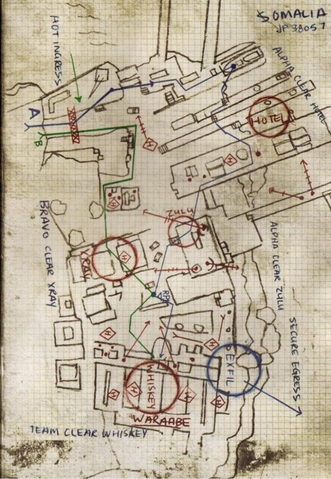 SOMALIA
JP 3805?
HOT INGRESS
ALPHA CLEAR HOTEL
A
B
HOTEL
ZULU
BRAVO CLEAR XRAY
XRAY
ALPHA CLEAR ZULU
SECURE EGRESS
EXFIL
WHISKEY
WARAABE
TEAM CLEAR WHISKEY